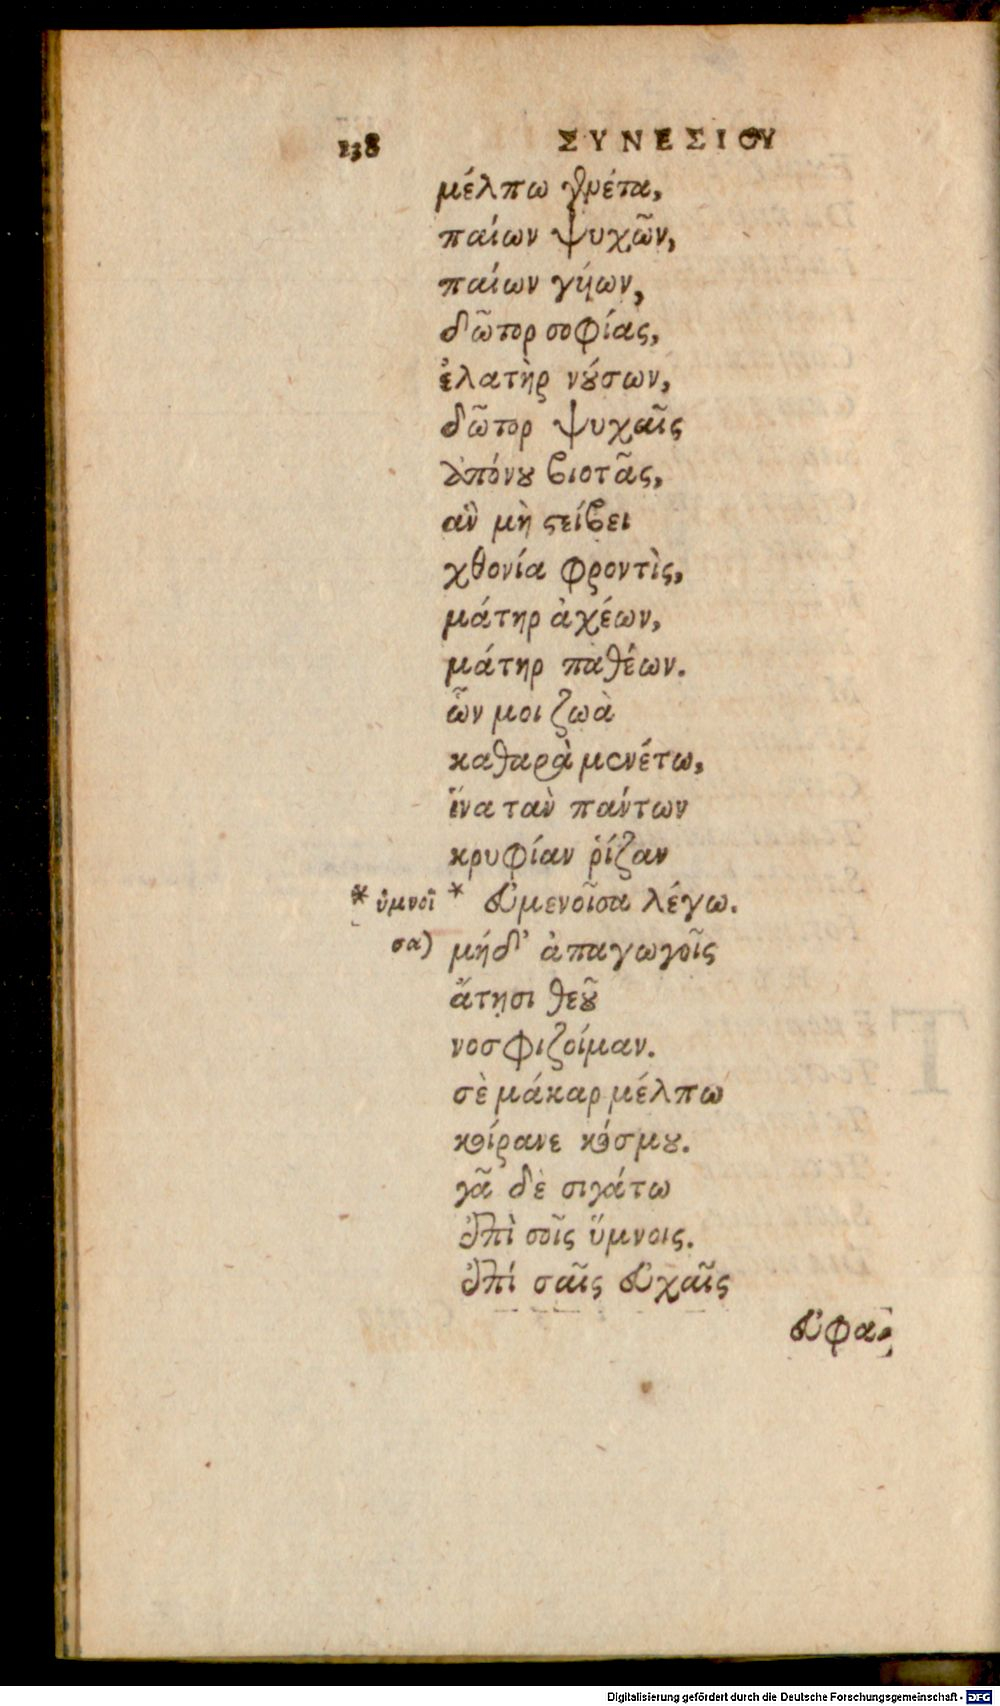 138 ΣΥΝΕΣΙΟΥ
μέλπω γενέτα,
παίων ψυχῶν,
παίων γήων,
δῶτορ σοφίας,
ἐλατὴρ νούσων,
δῶτορ ψυχαῖς
ἀπόνου βιοτᾶς,
ἃν μὴ στείβει
χθονία φροντὶς,
μάτηρ ἀχέων,
μάτηρ παθέων.
ὧν μοι ζωὰ
καθαρὰ μενέτω,
ἵνα τὰν πάντων
κρυφίαν ῥίζαν
* ὑμνοῖ * εὐμενοῖσα λέγω.
σα) μήδ' ἀπαγωγοῖς
ἄτῃσι θεοῦ
νοσφιζοίμαν.
σὲ μάκαρ μέλπω
κοίρανε κόσμου.
γᾶ δὲ σιγάτω
ἐπὶ σοῖς ὕμνοις.
ἐπί σαῖς εὐχαῖς
εὐφα-
Digitalisierung gefördert durch die Deutsche Forschungsgemeinschaft - DFG